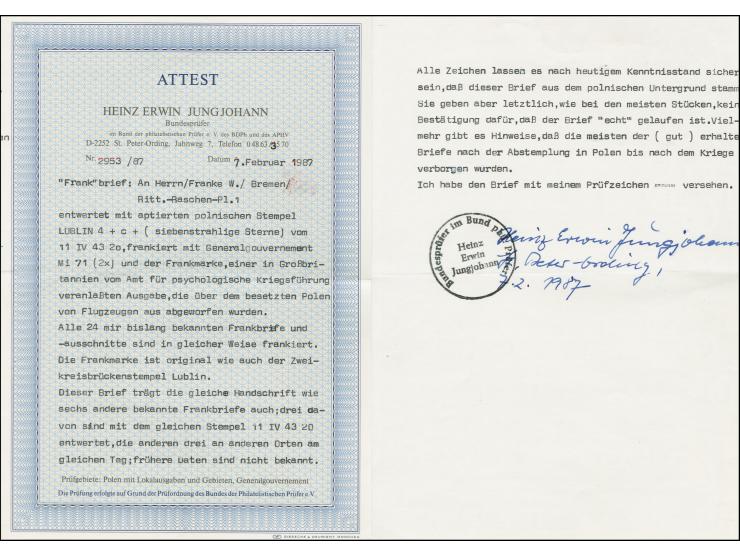 ATTEST
HEINZ ERWIN JUNGJOHANN
Bundesprüfer
im Bund der philatelistischen Prüfer e. V. des BDPh und des APHV
D-2252 St. Peter-Ording, Jahnweg 7, Telefon 0 48 63 / 3570
Nr. 2953 /87 Datum 7.Februar 1987
"Frank"brief: An Herrn/Franke W./ Bremen/
Ritt.-Raschen-Pl.1
entwertet mit aptierten polnischen Stempel
LUBLIN 4 + c + ( siebenstrahlige Sterne) vom
11 IV 43 20,frankiert mit Generalgouvernement
Mi 71 (2x) und der Frankmarke,einer in Großbri-
tannien vom Amt für psychologische Kriegsführung
veranlaßten Ausgabe,die über dem besetzten Polen
von Flugzeugen aus abgeworfen wurden.
Alle 24 mir bislang bekannten Frankbriefe und
-ausschnitte sind in gleicher Weise frankiert.
Die Frankmarke ist original wie auch der Zwei-
kreisbrückenstempel Lublin.
Dieser Brief trägt die gleiche Handschrift wie
sechs andere bekannte Frankbriefe auch;drei da-
von sind mit dem gleichen Stempel 11 IV 43 20
entwertet,die anderen drei an anderen Orten am
gleichen Tag;frühere Daten sind nicht bekannt.
Prüfgebiete: Polen mit Lokalausgaben und Gebieten, Generalgouvernement
Die Prüfung erfolgte auf Grund der Prüfordnung des Bundes der Philatelistischen Prüfer e.V.
Alle Zeichen lassen es nach heutigem Kenntnisstand sicher
sein,daß dieser Brief aus dem polnischen Untergrund stamm
Sie geben aber letztlich,wie bei den meisten Stücken,kein
Bestätigung dafür,daß der Brief "echt" gelaufen ist.Viel-
mehr gibt es Hinweise,daß die meisten der ( gut ) erhalte
Briefe nach der Abstemplung in Polen bis nach dem Kriege
verborgen wurden.
Ich habe den Brief mit meinem Prüfzeichen versehen.
Bundesprüfer im Bund phil. Prüfer
Heinz
Erwin
Jungjohann
Heinz Erwin Jungjohann
St. Peter-Ording,
7.2. 1987